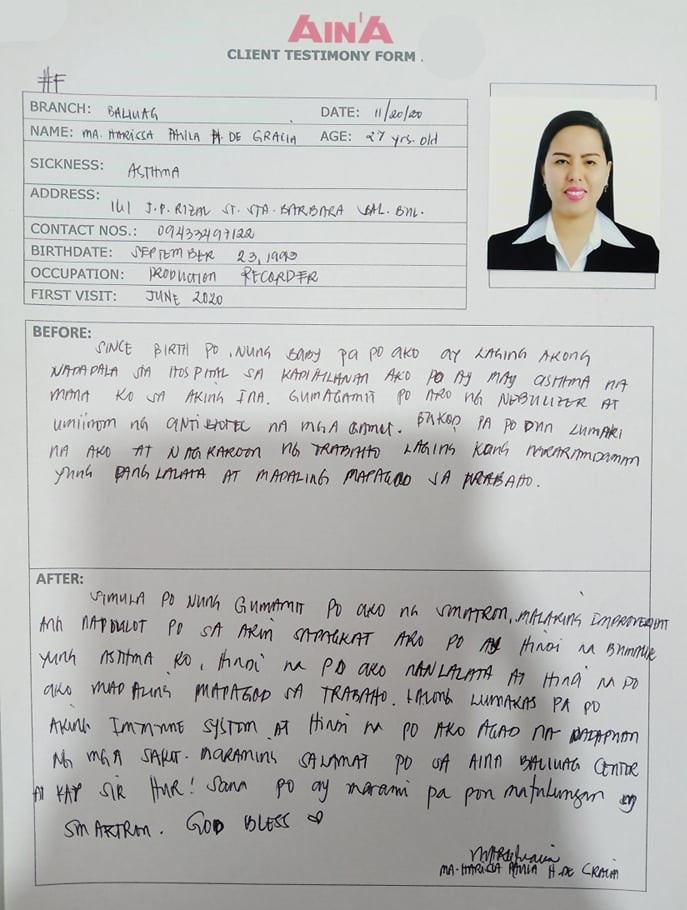 AIN'A
CLIENT TESTIMONY FORM .
#F
BRANCH: BALIUAG DATE: 11/20/20
NAME: MA. HARICSA PAULA H. DE GRACIA AGE: 27 yrs. old
SICKNESS: ASTHMA
ADDRESS: 161 J.P. RIZAL ST. STA. BARBARA BAL. BUL.
CONTACT NOS.: 09433497122
BIRTHDATE: SEPTEMBER 23, 1993
OCCUPATION: PRODUCTION RECORDER
FIRST VISIT: JUNE 2020
BEFORE:
SINCE BIRTH PO, NUNG BABY PA PO AKO AY LAGING AKONG
NADADALA SA HOSPITAL SA KADAHLANAN AKO PO AY MAY ASTHMA NA
MANA KO SA AKING INA. GUMAGAMIT PO AKO NG NEBULIZER AT
UMIINOM NG NA MGA GAMOT. BUKOD PA PO DUN LUMAKI
NA AKO AT NAGKAROON NG TRABAHO LAGING KONG NARARAMDAMAN
YUNG PANG LALATA AT MADALING MAPAGOD SA TRABAHO.
AFTER:
SIMULA PO NUNG GUMAMIT PO AKO NG SMATRON, MALAKING IMPROVEMENT
ANG NADULOT PO SA AKIN SAPAGKAT AKO PO AY HINDI NA
YUNG ASTHMA KO, HINDI NA PO AKO NANLALATA AT HINDI NA PO
AKO MADALING MAPAGOD SA TRABAHO. LALONG LUMAKAS PA PO
AKING IMMUNE SYSTEM AT HINDI NA PO AKO AGAD NA DADAPUAN
NG MGA SAKIT. MARAMING SALAMAT PO SA AINA BALIUAG CENTER
AT KAY SIR HUR! Sana po ay marami pa pon matulungan ng
SMARTRON. GOD BLESS ♡
MA. HARICSA PAULA H. DE GRACIA